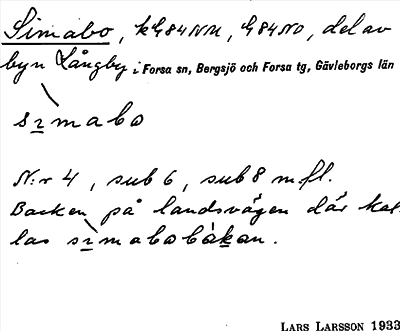 Simabo, kh84NM, h84NO, del av
byn Långby i Forsa sn, Bergsjö och Forsa tg, Gävleborgs län
sımabo
N:r 4, sub 6, sub 8 m.fl.
Backen på landsvägen där kal-
las sımabobàkan.
LARS LARSSON 1933